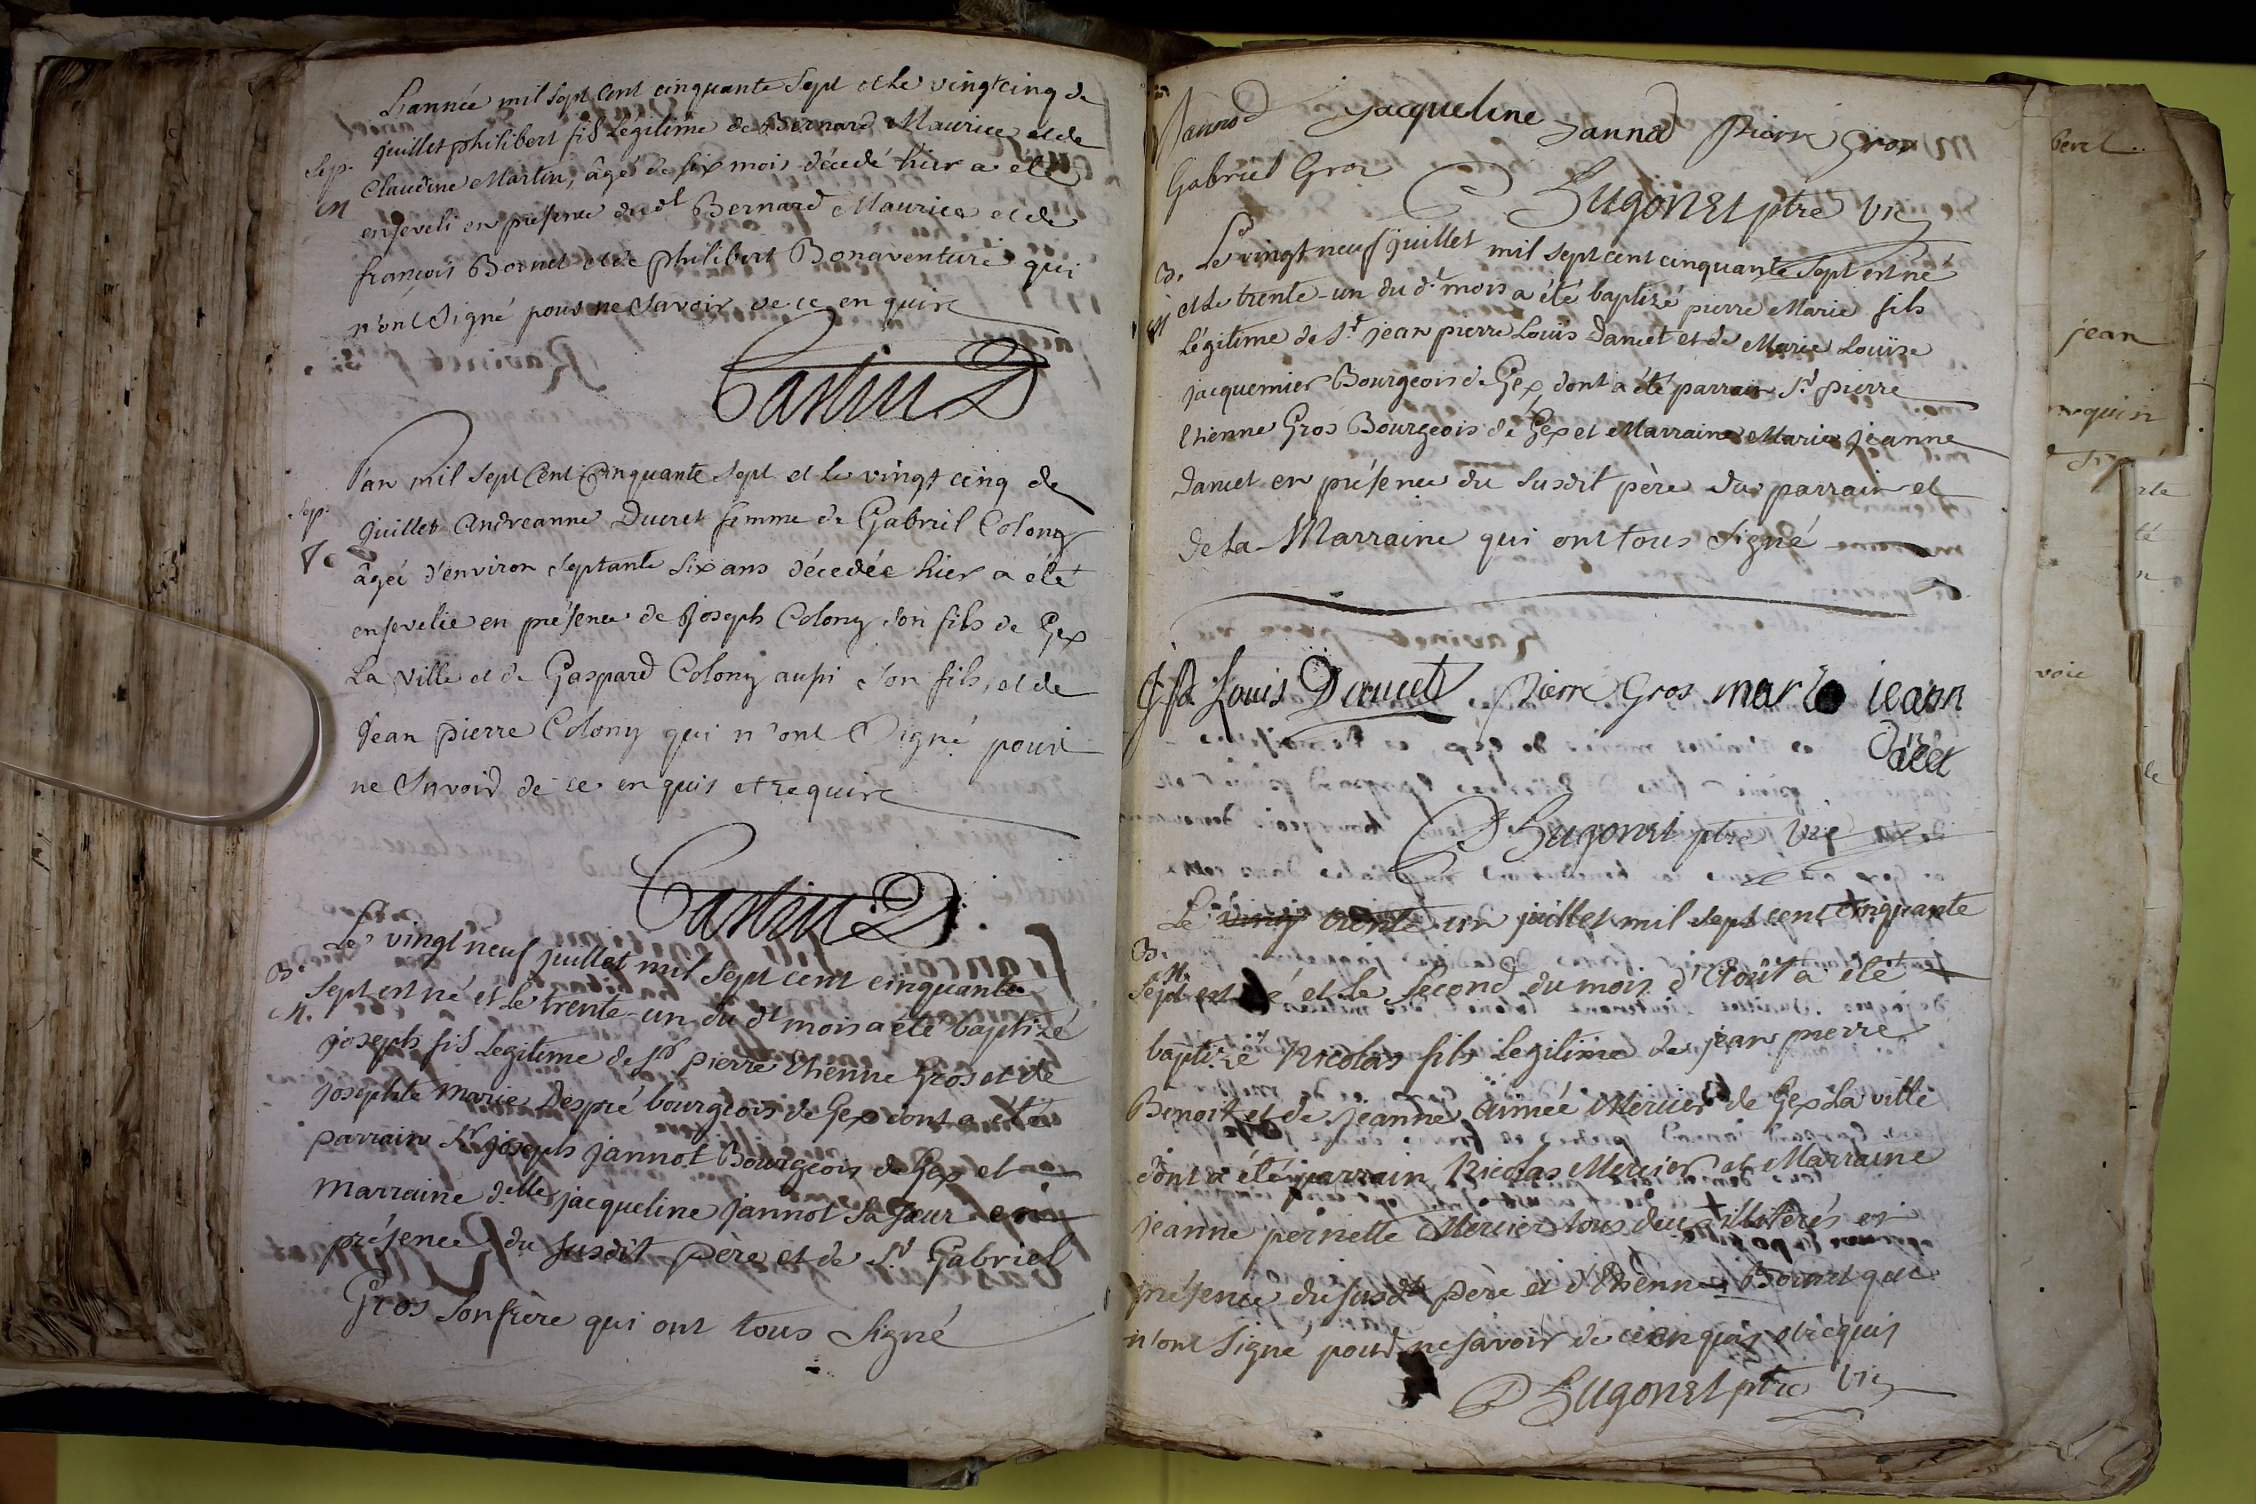 L'année mil sept cent cinquante sept et le vingt cinq de
juillet philibert fils legitime de Bernard Maurice et de
Sep. Claudine Martin, âgé de six mois décédé hier a eté
M enseveli en présence du dt Bernard Maurice et de
françois Bornet et de philibert Bonaventure qui
n'ont Signé pour ne Savoir de ce enquire
Castin
L'an mil sept Cent Cinquante sept et le vingt cinq de
Sep. juillet Andreanne Ducret femme de Gabriel Colony
âgée d'environ Septante Six ans décedée hier a été
ensevelie en présence de Joseph Colony son fils de Gex
La Ville et de Gaspard Colony aussi son fils, et de
Jean pierre Colony qui n'ont Signé pour
ne Savoir de ce enquis et require
Castin
Le vingt neuf juillet mil Sept cent cinquante
B. Sept est né et le trente-un du dt mois a été baptizé
M. joseph fils Legitime de Sr pierre Etienne Gros et de
josephte Marie Despré bourgeois de Gex dont a été
parrain Sr joseph jannot Bourgeois de Gex et
Marraine delle jacqueline jannot Sa sœur en
présence du susdit père et de Sr Gabriel
Gros Son frère qui ont tous Signé
Jannod jacqueline Jannod Pierre Gros
Gabriel Gros
Hugonet ptre vic
B. Le vingt neuf juillet mil sept cent cinquante sept est né
M et le trente-un du dt mois a été baptizé pierre Marie fils
Légitime de Sr jean pierre Louis Dancet et de Marie Louïse
jacquemier Bourgeois de Gex, dont a été parrain Sr pierre
Etienne Gros Bourgeois de Gex et Marraine Marie jeanne
Dancet en présence du susdit père du parrain et
de la Marraine qui ont tous Signé
Louis Dancet Pierre Gros marie jeann
Hugonet ptre vic
Le vingt trente un juillet mil sept cent cinquante
B.
M.
Sept est né et le second du mois d'Août a été
baptizé Nicolas fils legitime de jean pierre
Benoit et de jeanne Aimée Mercier de Gex La ville
dont a été parrain Nicolas Mercier et Marraine
jeanne pernette Mercier tous deux illiterés en
présence du susdt père et d'Etienne Bornet qui
n'ont Signé pour ne savoir de ce enquis et requis
Hugonet ptre vic
berel
jean
quin
voie